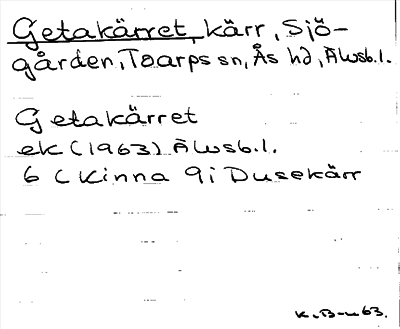 Getakärret, kärr, Sjö-
gården, Toarps sn, Ås hd, Älvsb.l.
Getakärret
ek (1963) Älvsb.l.
6 C Kinna 9i Dusekärr
K.B-n 63.